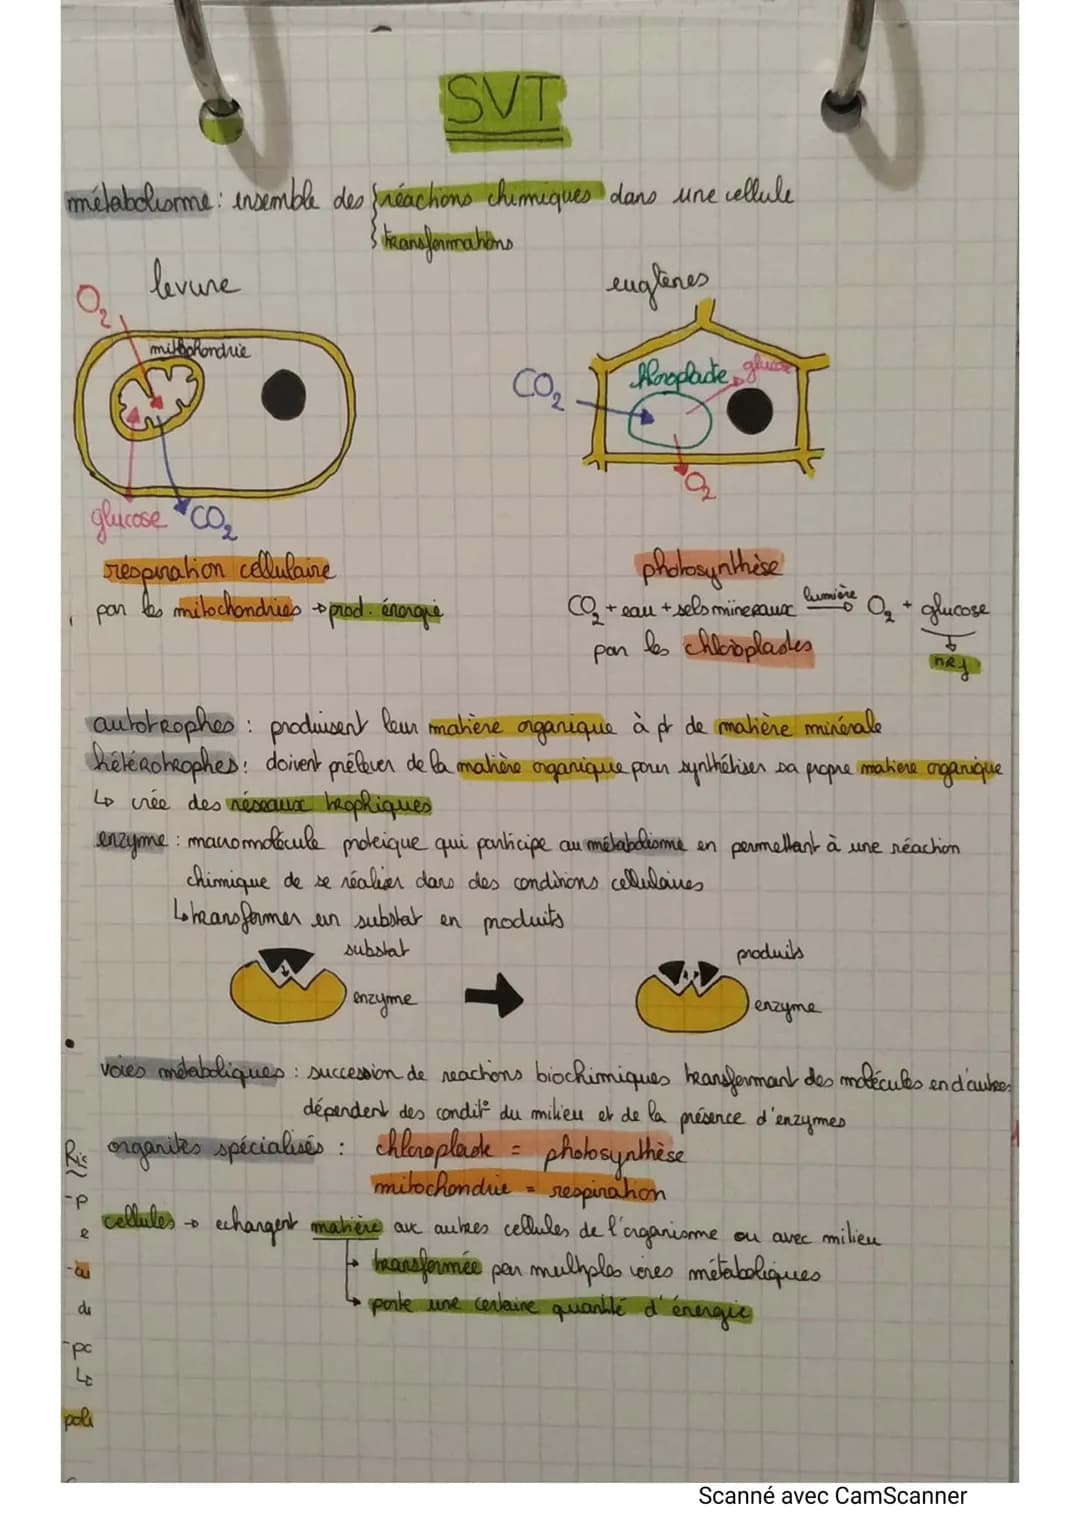 SVT
métabolisme : ensemble des { réactions chimiques dans une cellule
{ transformations
levure
euglènes
O2
mitochondrie
CO2
chloroplaste
glucose
O2
glucose
CO2
respiration cellulaire
photosynthèse
par les mitochondries → prod. énergie
CO2 + eau + sels minéraux lumière → O2 + glucose
par les chloroplastes
nRj
autotrophes : produisent leur matière organique à pr de matière minérale
hétérotrophes : doivent prélever de la matière organique pour synthétiser sa propre matière organique
↳ crée des réseaux trophiques
enzyme : macromolécule protéique qui participe au métabolisme en permettant à une réaction
chimique de se réaliser dans des conditions cellulaires
↳ transformer un substat en produits
substat
produits
enzyme
enzyme
voies métaboliques : succession de reactions biochimiques transformant des molécules en d'autres
dépendent des condit° du milieu et de la présence d'enzymes
organites spécialisés : chloroplaste = photosynthèse
mitochondrie = respiration
cellules → echangent matière avc autres cellules de l'organisme ou avec milieu
→ transformée par multiples voies métaboliques
→ porte une certaine quantité d'énergie
-p
e
de
-pc
↳
Scanné avec CamScanner